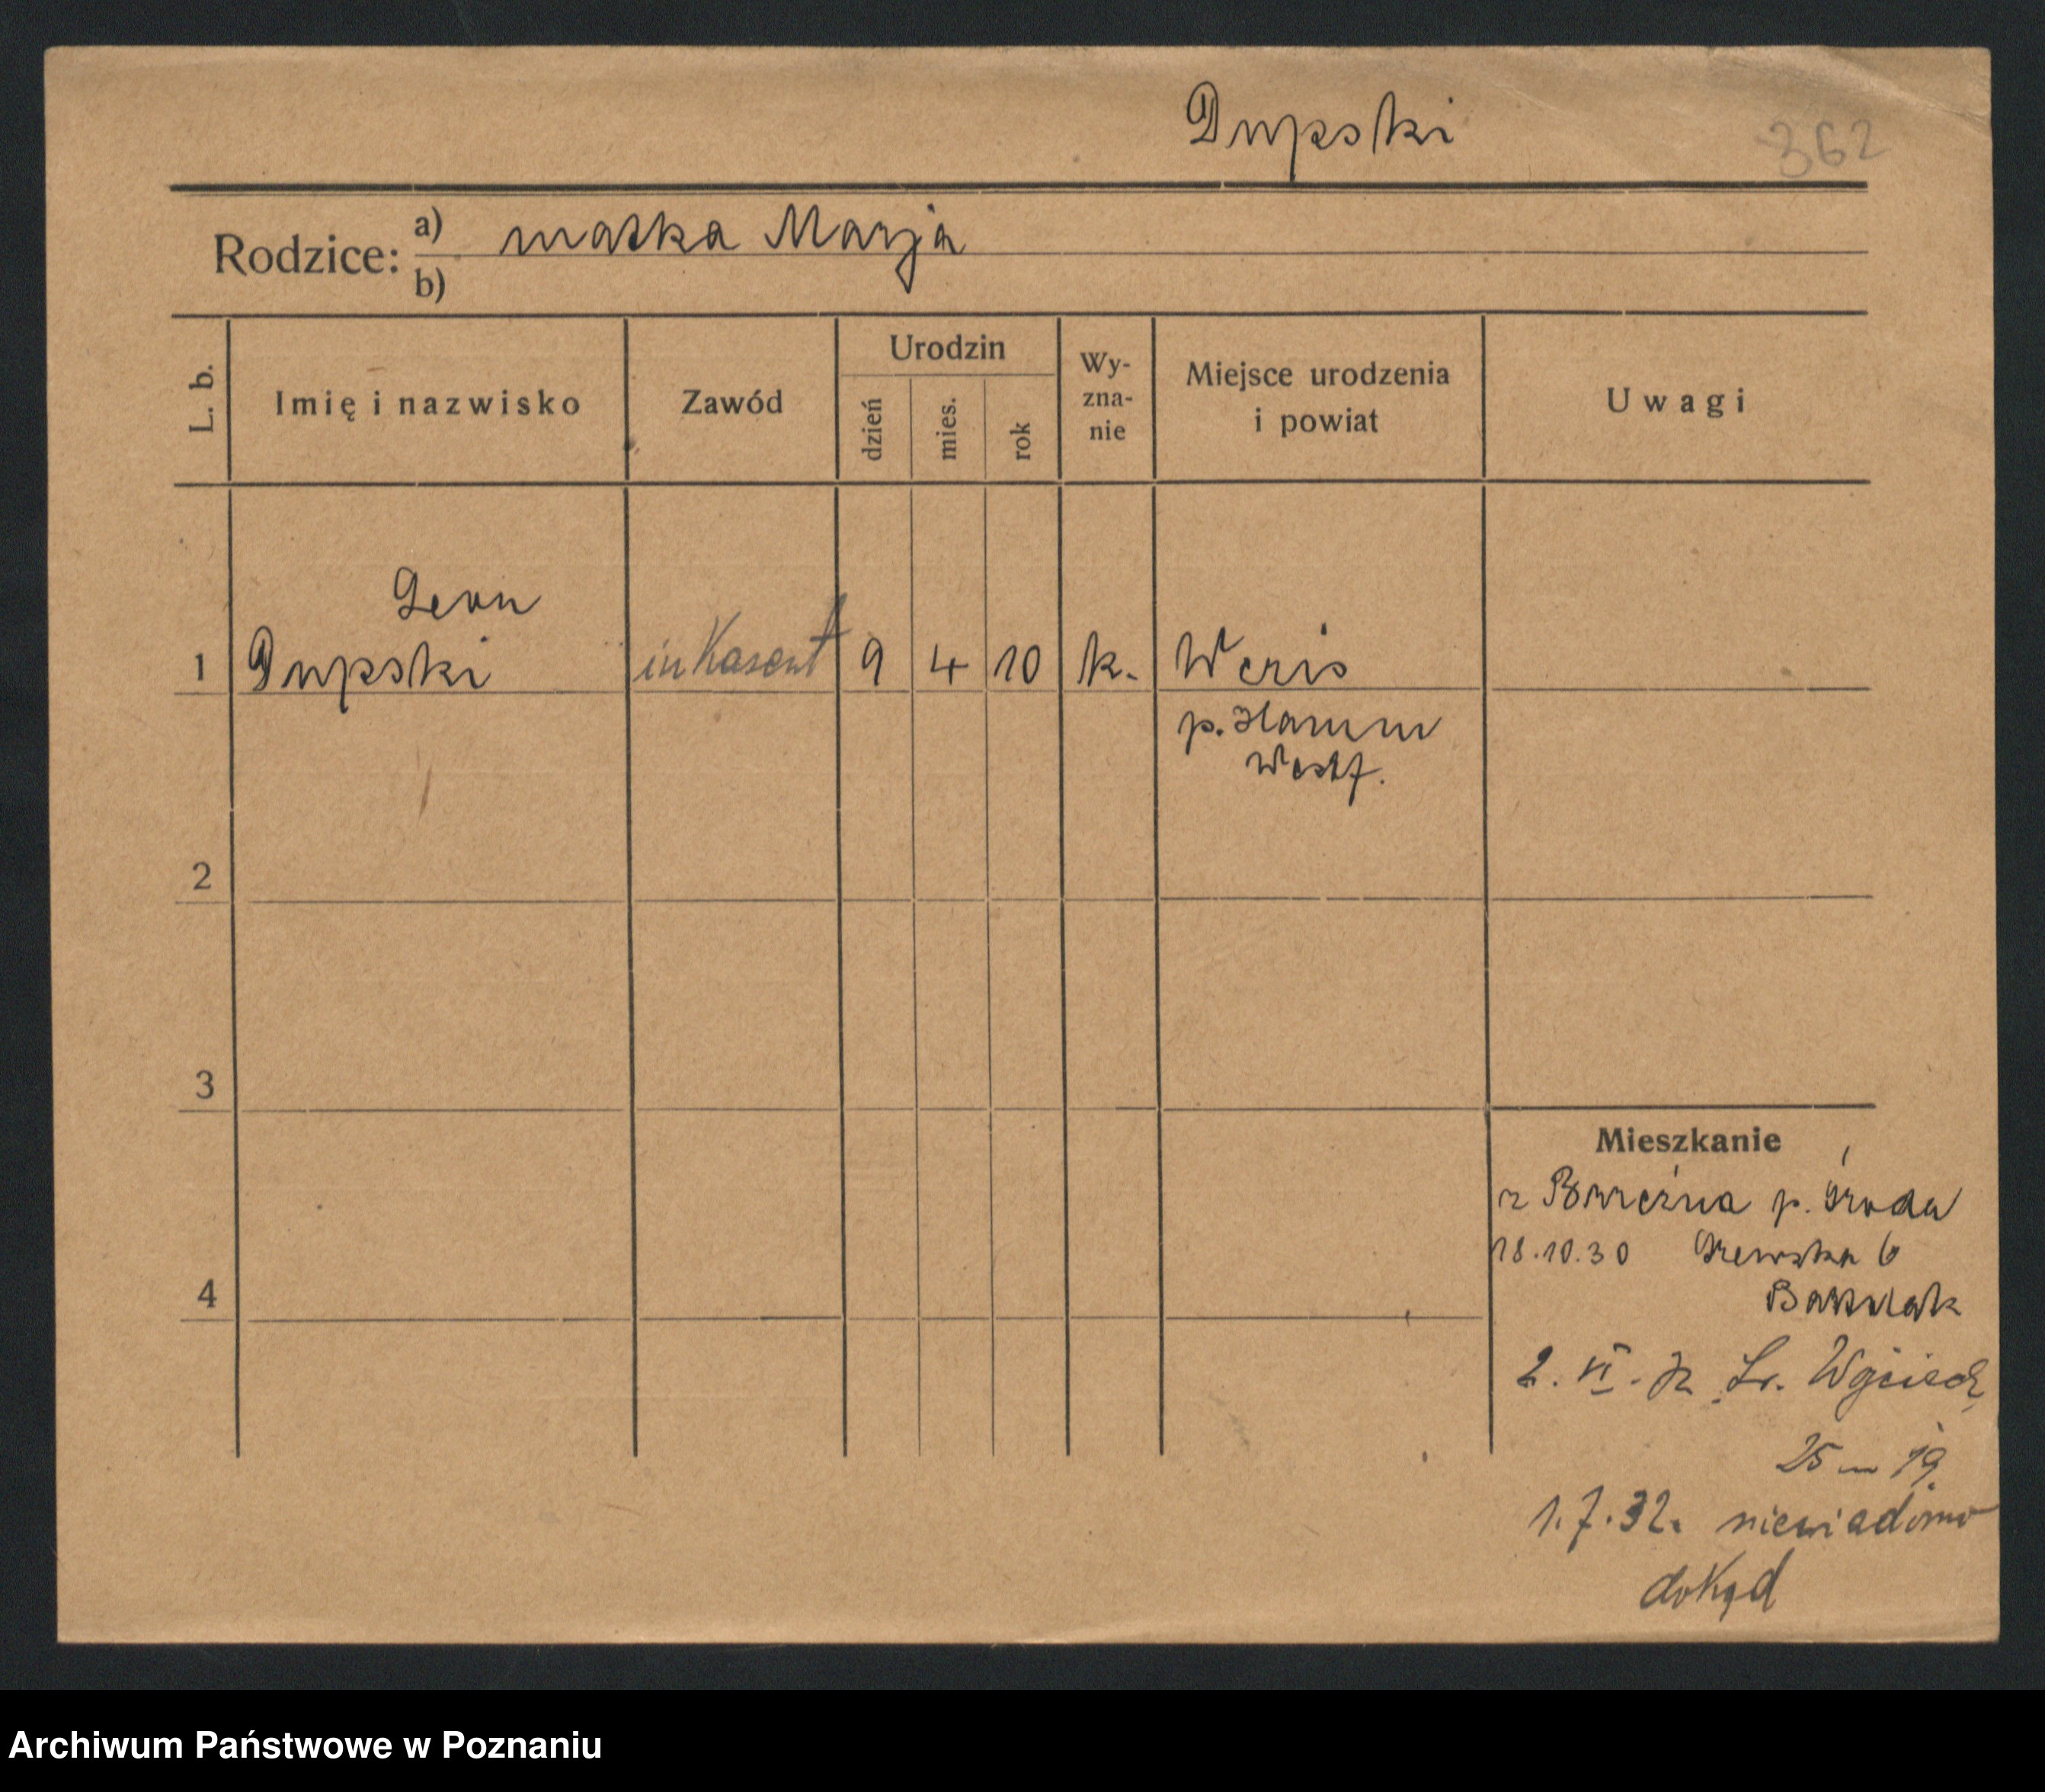 Dupski 362
Rodzice: a) matka Marja
b)
L. b. Imię i nazwisko Zawód Urodzin dzień mies. rok Wy-zna-nie Miejsce urodzenia i powiat Uwagi
Leon
1 Dupski inkasent 9 4 10 k. Weris
p. Hamm
Westf.
2
3
Mieszkanie
z p. Środa
4 18.10.30 6
2. VI. Św. Wojciech
25 – 19
1.7.32. niewiadomo
dokąd
Archiwum Państwowe w Poznaniu